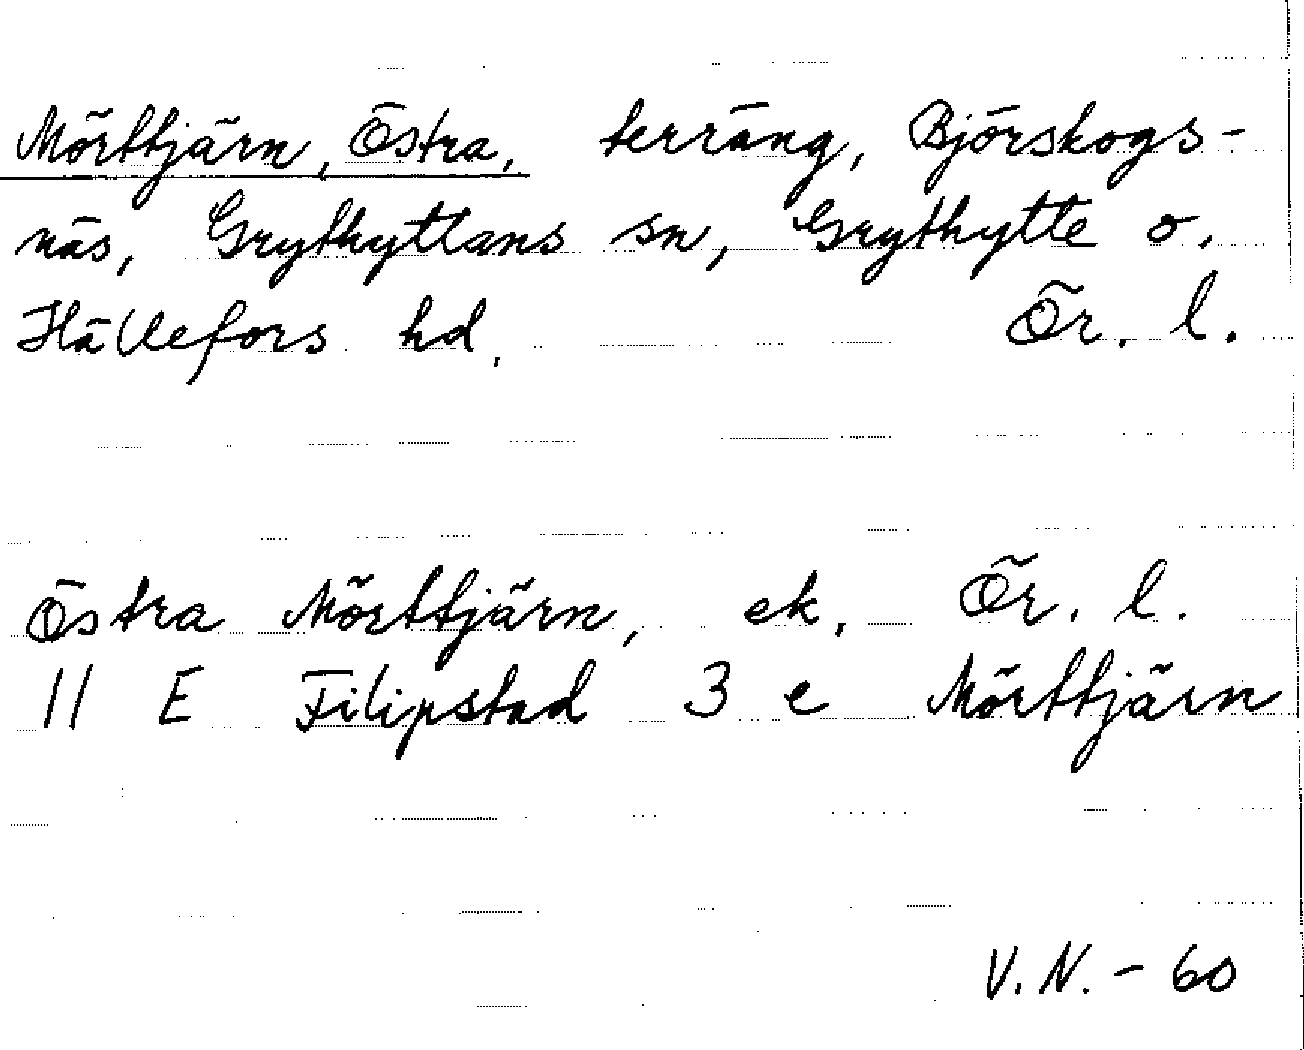 Mörttjärn, Östra, terräng, Björskogs-
näs, Grythyttans sn, Grythytte o.
Hällefors hd. Ör. l.
Östra Mörttjärn, ek. Ör. l.
11 E Filipstad 3 e Mörttjärn
V.N. - 60